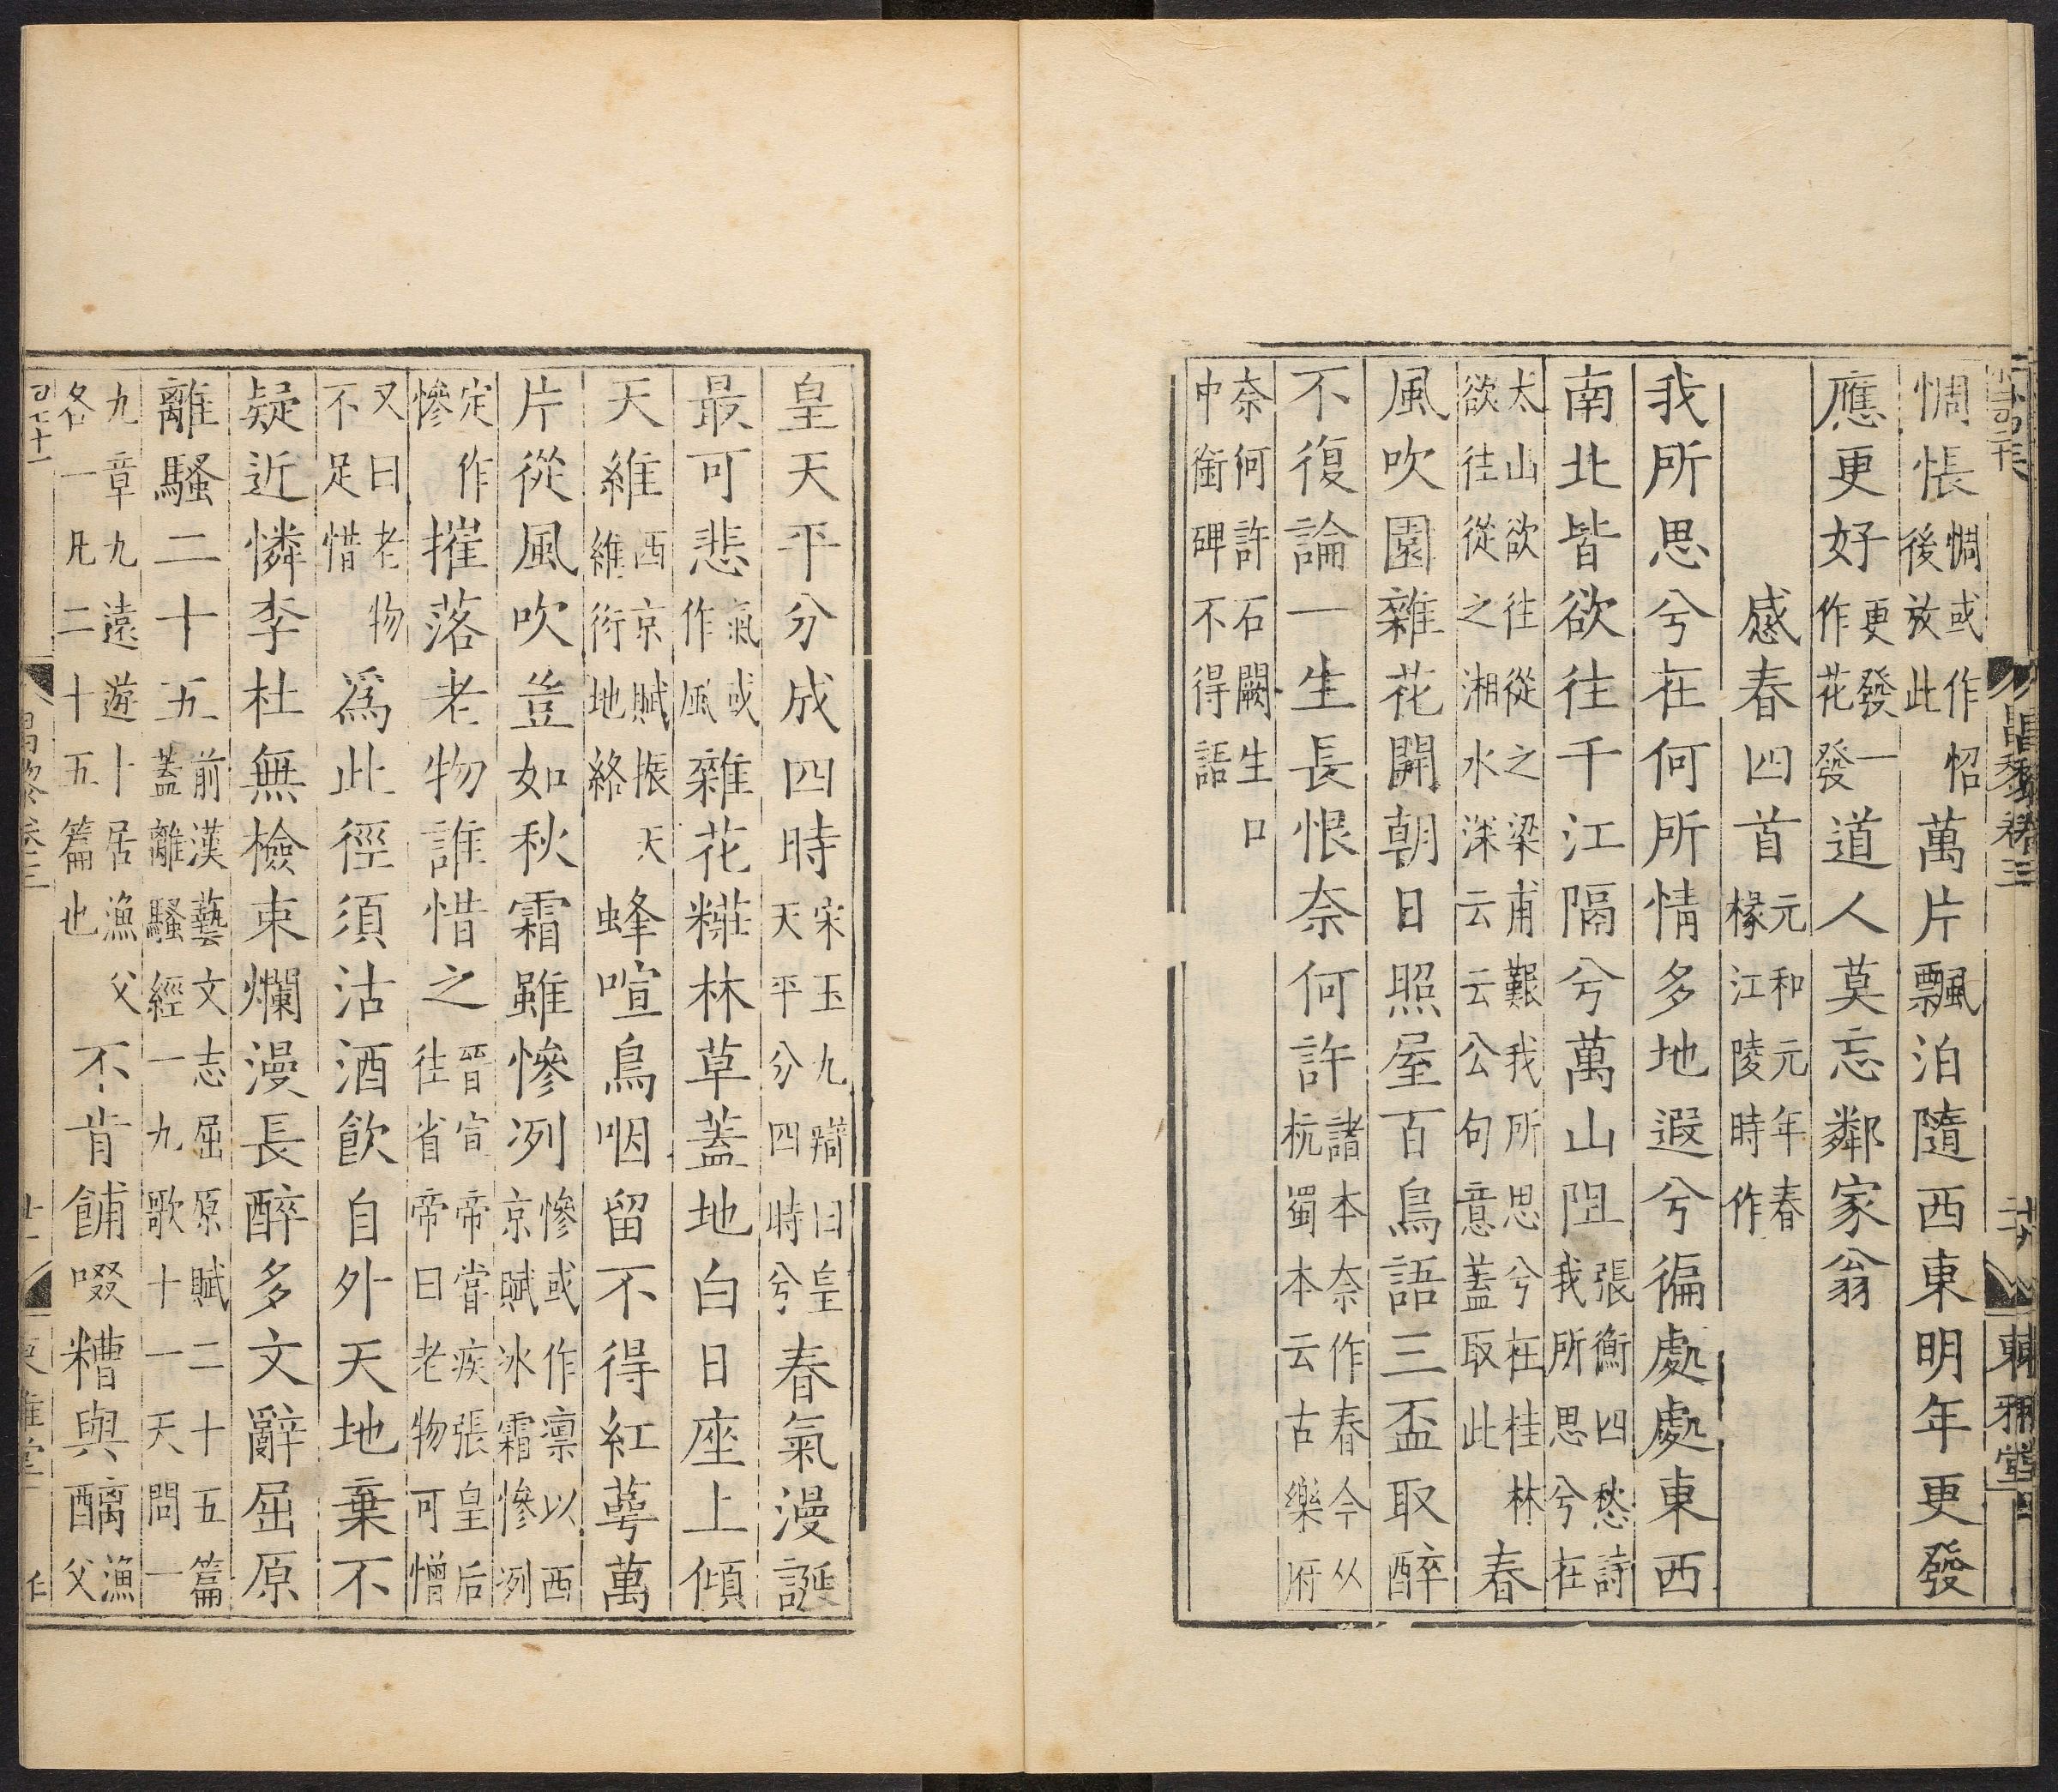 惆悵惆或作怊後放此萬片飄泊隨西東明年更發
應更好更發一作花發道人莫忘鄰家翁
感春四首元和元年春掾江陵時作
我所思兮在何所情多地遐兮徧處處東西
南北皆欲往千江隔兮萬山阻張衡四愁詩我所思兮在
太山欲往從之梁甫艱我所思兮在桂林欲往從之湘水深云云公句意蓋取此春
風吹園雜花開朝日照屋百鳥語三盃取醉
不復論一生長恨奈何許諸本奈作春今从杭蜀本云古樂府
奈何許石闕生口中銜碑不得語
皇天平分成四時宋玉九辯曰皇天平分四時兮春氣漫誕
最可悲氣或作風雜花糚林草蓋地白日座上傾
天維西京賦振天維衍地絡蜂喧鳥咽留不得紅萼萬
片從風吹豈如秋霜雖慘冽慘或作凛以西京賦冰霜慘冽
定作慘摧落老物誰惜之晉宣帝嘗疾張皇后往省帝曰老物可憎
又曰老物不足惜爲此徑須沽酒飮自外天地棄不
疑近憐李杜無檢束爛漫長醉多文辭屈原
離騷二十五前漢藝文志屈原賦二十五篇蓋離騷經一九歌十一天問一
九章九遠遊卜居漁父各一凡二十五篇也不肯餔啜糟與醨漁父
昌黎卷三
東雅堂